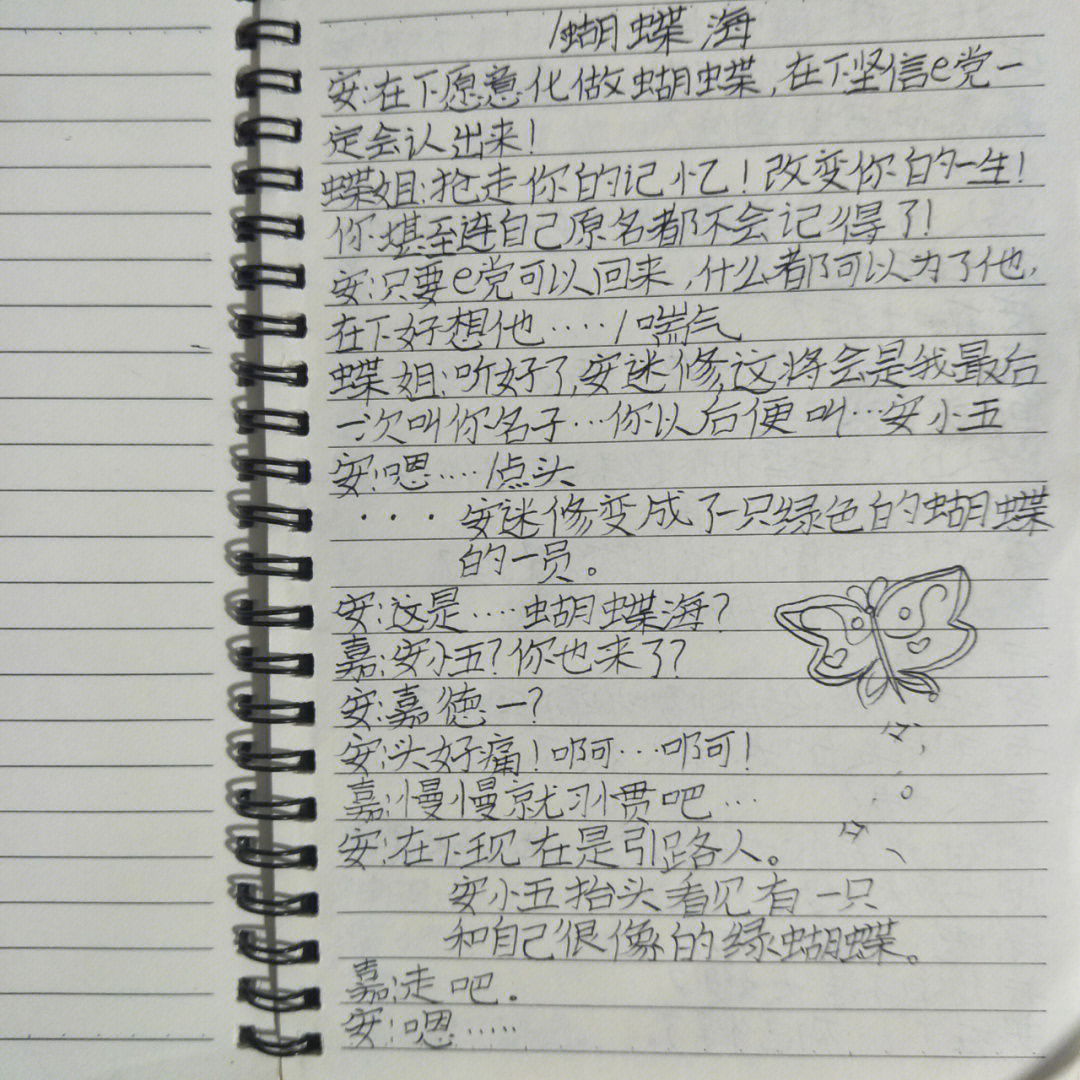 /蝴蝶海
安:在下愿意化做蝴蝶,在下坚信e党一
定会认出来!
蝶姐:抢走你的记忆!改变你的一生!
你堪至连自己原名都不会记得了!
安:只要e党可以回来,什么都可以为了他,
在下好想他·····/喘气
蝶姐:听好了,安迷修,这将会是我最后
一次叫你名子···你以后便叫···安小五
安:嗯····/点头
···· 安迷修变成了一只绿色的蝴蝶
的一员。
安:这是····蝴蝶海?
嘉:安小五?你也来了?
安:嘉德一?
安:头好痛!啊···啊!
嘉:慢慢就习惯吧···
安:在下现在是引路人。
安小五抬头看见有一只
和自己很像的绿蝴蝶。
嘉:走吧.
安:嗯·····